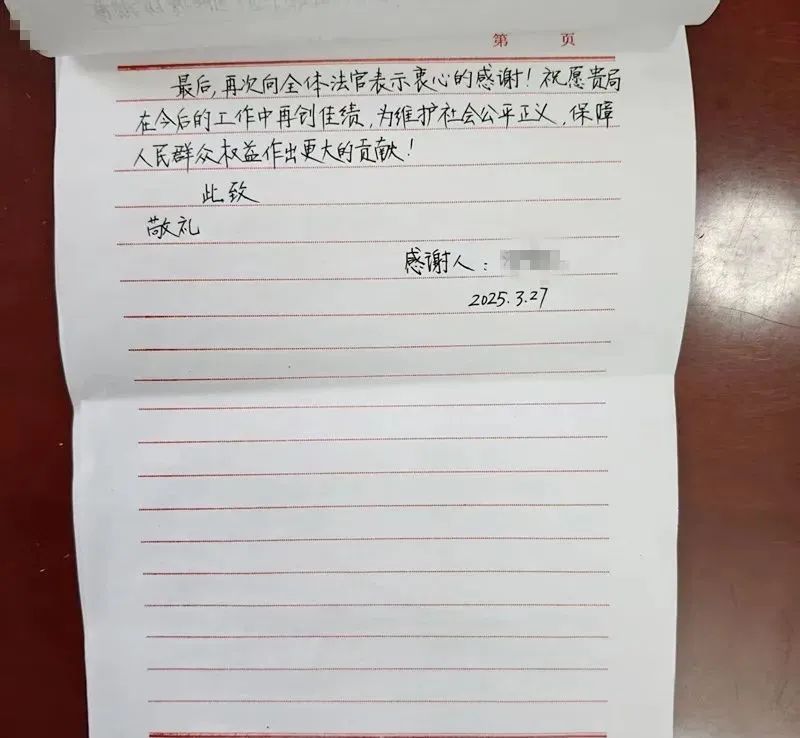 第 页
最后,再次向全体法官表示衷心的感谢!祝愿贵局
在今后的工作中再创佳绩,为维护社会公平正义,保障
人民群众权益作出更大的贡献!
此致
敬礼
感谢人:
2025.3.27